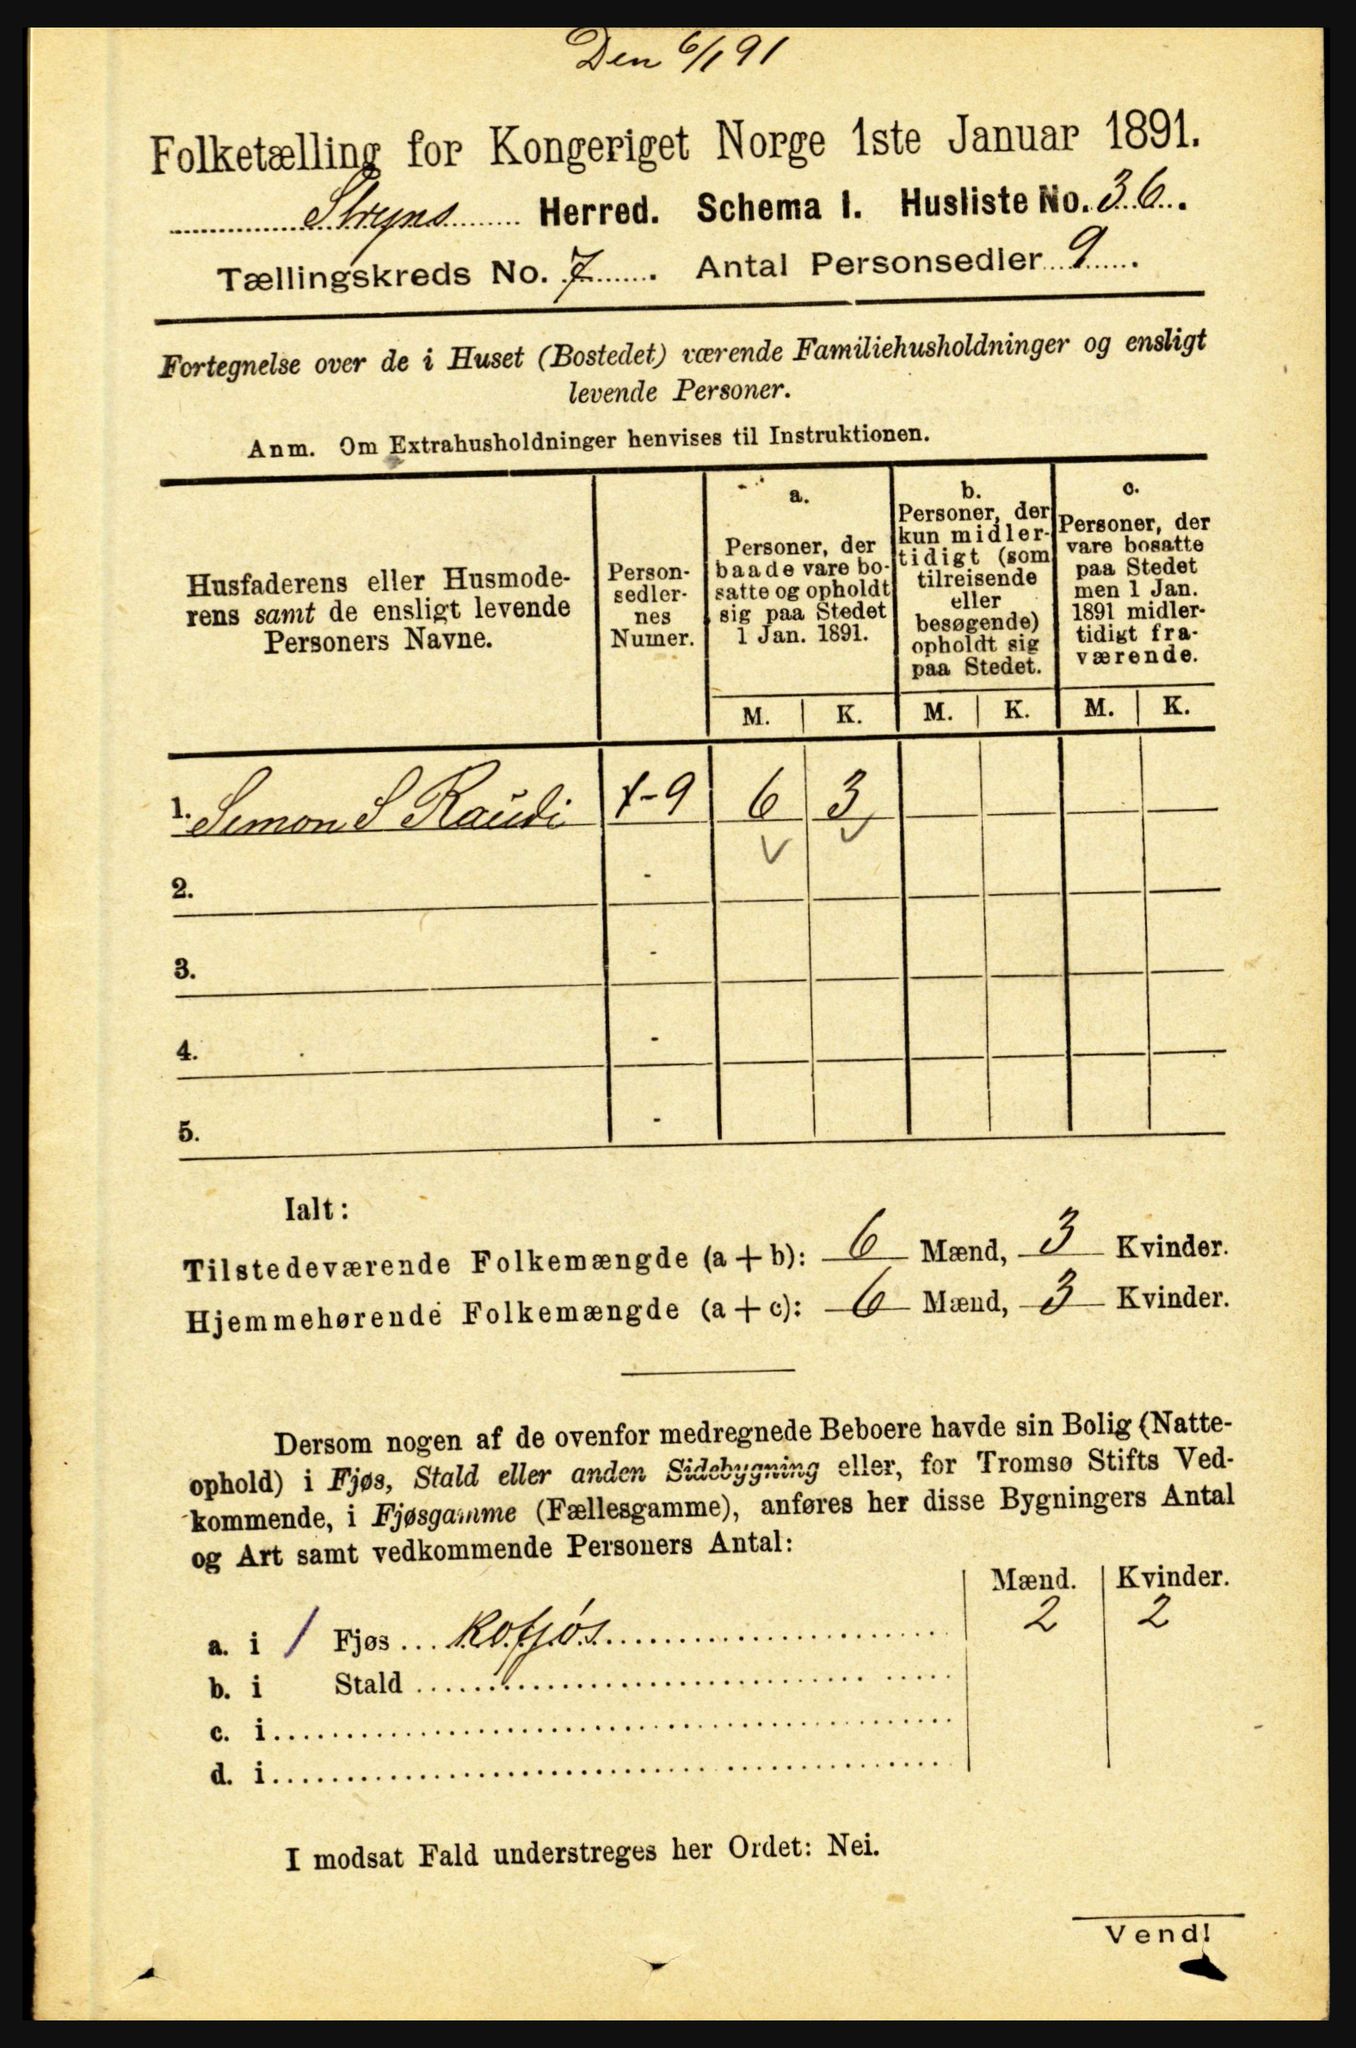 Den 6/1 91
Folketælling for Kongeriget Norge 1ste Januar 1891.
Stryns Herred. Schema I. Husliste No. 36.
Tællingskreds No. 7. Antal Personsedler 9.
Fortegnelse over de i Huset (Bostedet) værende Familiehusholdninger og ensligt
levende Personer.
Anm. Om Extrahusholdninger henvises til Instruktionen.
Husfaderens eller Husmode-
rens samt de ensligt levende
Personers Navne.
Person-
sedler-
nes
Numer.
a.
Personer, der
baade vare bo-
satte og opholdt
sig paa Stedet
1 Jan. 1891.
b.
Personer, der
kun midler-
tidigt (som
tilreisende
eller
besøgende)
opholdt sig
paa Stedet.
c.
Personer, der
vare bosatte
paa Stedet
men 1 Jan.
1891 midler-
tidigt fra-
værende.
M. K. M. K. M. K.
1. Simon S Raudi 1-9 6 3
2. -
3. -
4. -
5. -
Ialt:
Tilstedeværende Folkemængde (a + b): 6 Mænd, 3 Kvinder.
Hjemmehørende Folkemængde (a + c): 6 Mænd, 3 Kvinder.
Dersom nogen af de ovenfor medregnede Beboere havde sin Bolig (Natte-
ophold) i Fjøs, Stald eller anden Sidebygning eller, for Tromsø Stifts Ved-
kommende, i Fjøsgamme (Fællesgamme), anføres her disse Bygningers Antal
og Art samt vedkommende Personers Antal:
Mænd. Kvinder.
a. i 1 Fjøs Kofjøs 2 2
b. i Stald
c. i
d. i
I modsat Fald understreges her Ordet: Nei.
Vend!